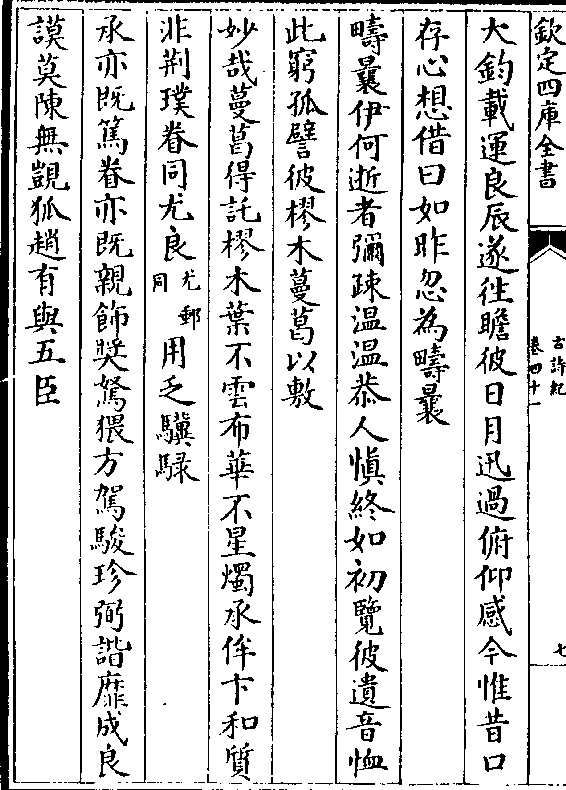 欽定四庫全書
古詩紀
卷四十一
七
大鈞載運良辰遂往瞻彼日月迅過俯仰感今惟昔口
存心想借曰如昨忽為疇曩
疇曩伊何逝者彌疎温温恭人慎終如初覽彼遺音恤
此窮孤譬彼樛木蔓葛以敷
妙哉蔓葛得託樛木葉不雲布華不星燭承侔卞和質
非荆璞眷同尤良尤郵同用乏驥騄
承亦既篤眷亦既親飾奬駑猥方駕駿珍弼諧靡成良
謨莫陳無覬狐趙有與五臣